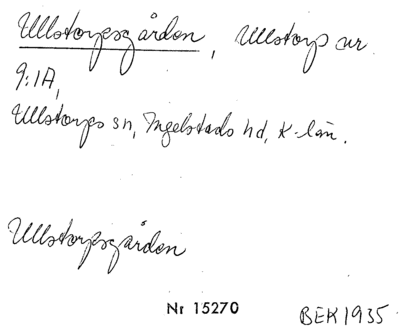 Ullstorpsgården, Ullstorp nr
9:1A,
Ullstorps sn, Ingelstads hd, K-län.
Ullstorpsgården
Nr 15270 BEK 1935